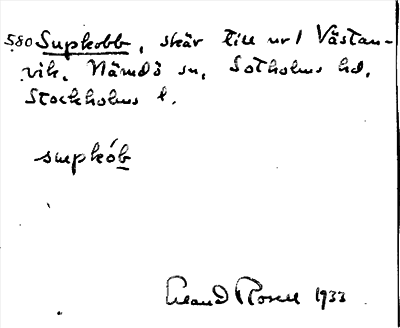 580 Supkobb, skär till nr 1 Västan-
vik, Nämdö sn, Sotholms hd,
Stockholms l.
supkób
Rosell 1933